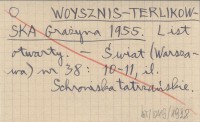 WOYSZNIS-TERLIKOW-
SKA Grażyna 1955. List
otwarty. — Świat (Warsza-
wa) nr 38: 10-11, il.
Schroniska tatrzańskie.